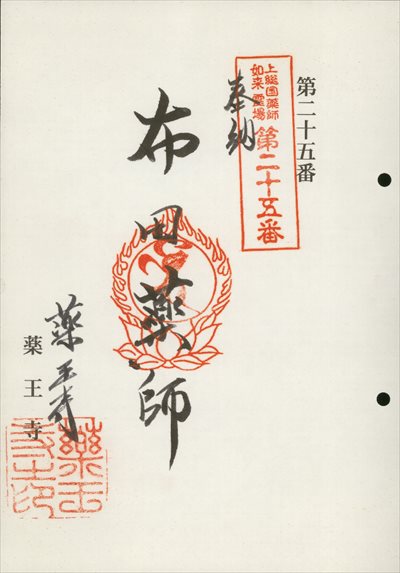 第二十五番
上総国薬師
如来霊場
第二十五番
奉納
布田薬師
薬王寺
薬王寺
薬王寺之印